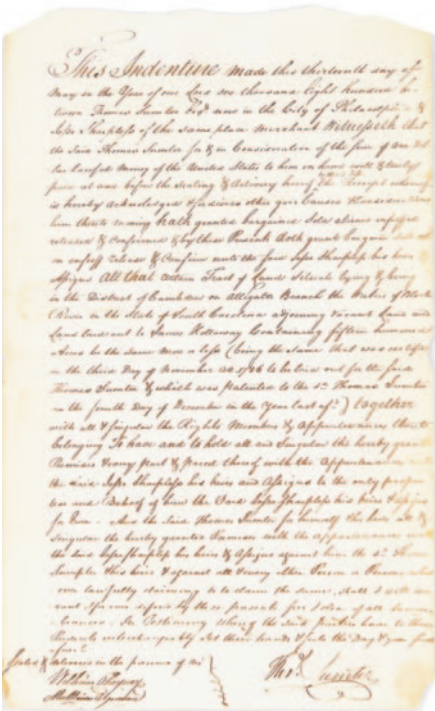 This Indenture made this thirteenth day of
May in the Year of our Lord one thousand Eight Hundred be-
tween Thomas Sumter Esqr now in the City of Philadelphia &
Jesse Sharpless of the same place Merchant Witnesseth that
the Said Thomas Sumter for & in Consideration of the Sum of one Dol-
lar Lawfull Money of the United States to him in hand well & truly
paid at and before the Sealing & delivery hereof the Receipt whereof
is hereby acknowledged & divers other good Causes & Considerations
him thereto moving hath granted bargained Sold aliened enfeoffed
released & Confirmed & by these Presents doth grant bargain Sell
enfeoff release & Confirm unto the Said Jesse Sharpless his heirs
Assigns All that certain Tract of Land Situate lying & being
in the District of Camden on Alligator Branch the Waters of Black
River in the State of South Carolina adjoining Vacant Land and
Land laid out to James Containing fifteen hundred
Acres be the same more or less (being the same that was
on the third Day of November 1786 to be laid out for the Said
Thomas Sumter & which was patented to the Sd Thomas Sumter
on the fourth Day of December in the Year last afsd) together
with all & Singular the Rights Members & Appurtenances thereto
belonging To have and to hold all and Singular the hereby granted
Premises & every Part & Parcel thereof with the Appurtenances
the Said Jesse Sharpless his heirs and Assigns to the only proper
use and Behoof of him the Said Jesse Sharpless his heirs & Assigns
for Ever. And the Said Thomas Sumter for himself his heirs all &
Singular the hereby granted Premises with the Appurtenances unto
the Said Jesse Sharpless his heirs & Assigns against him the Sd Thomas
Sumter & his heirs & against all & every other Person or Persons
lawfully claiming or to claim the same, Shall & will
for ever defend by these presents
In Testimony whereof the Said Parties have to these
Presents interchangeably Set their hands & Seals the Day & Year first
Sealed & delivered in the presence of us
William
Thos. Sumter